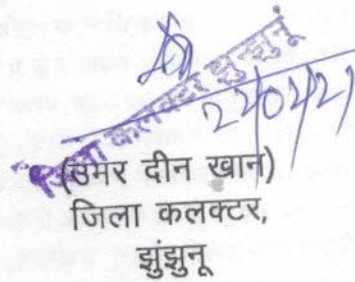 जिला कलक्टर झुन्झुनूं
(उमर दीन खान)
जिला कलक्टर,
झुंझुनू